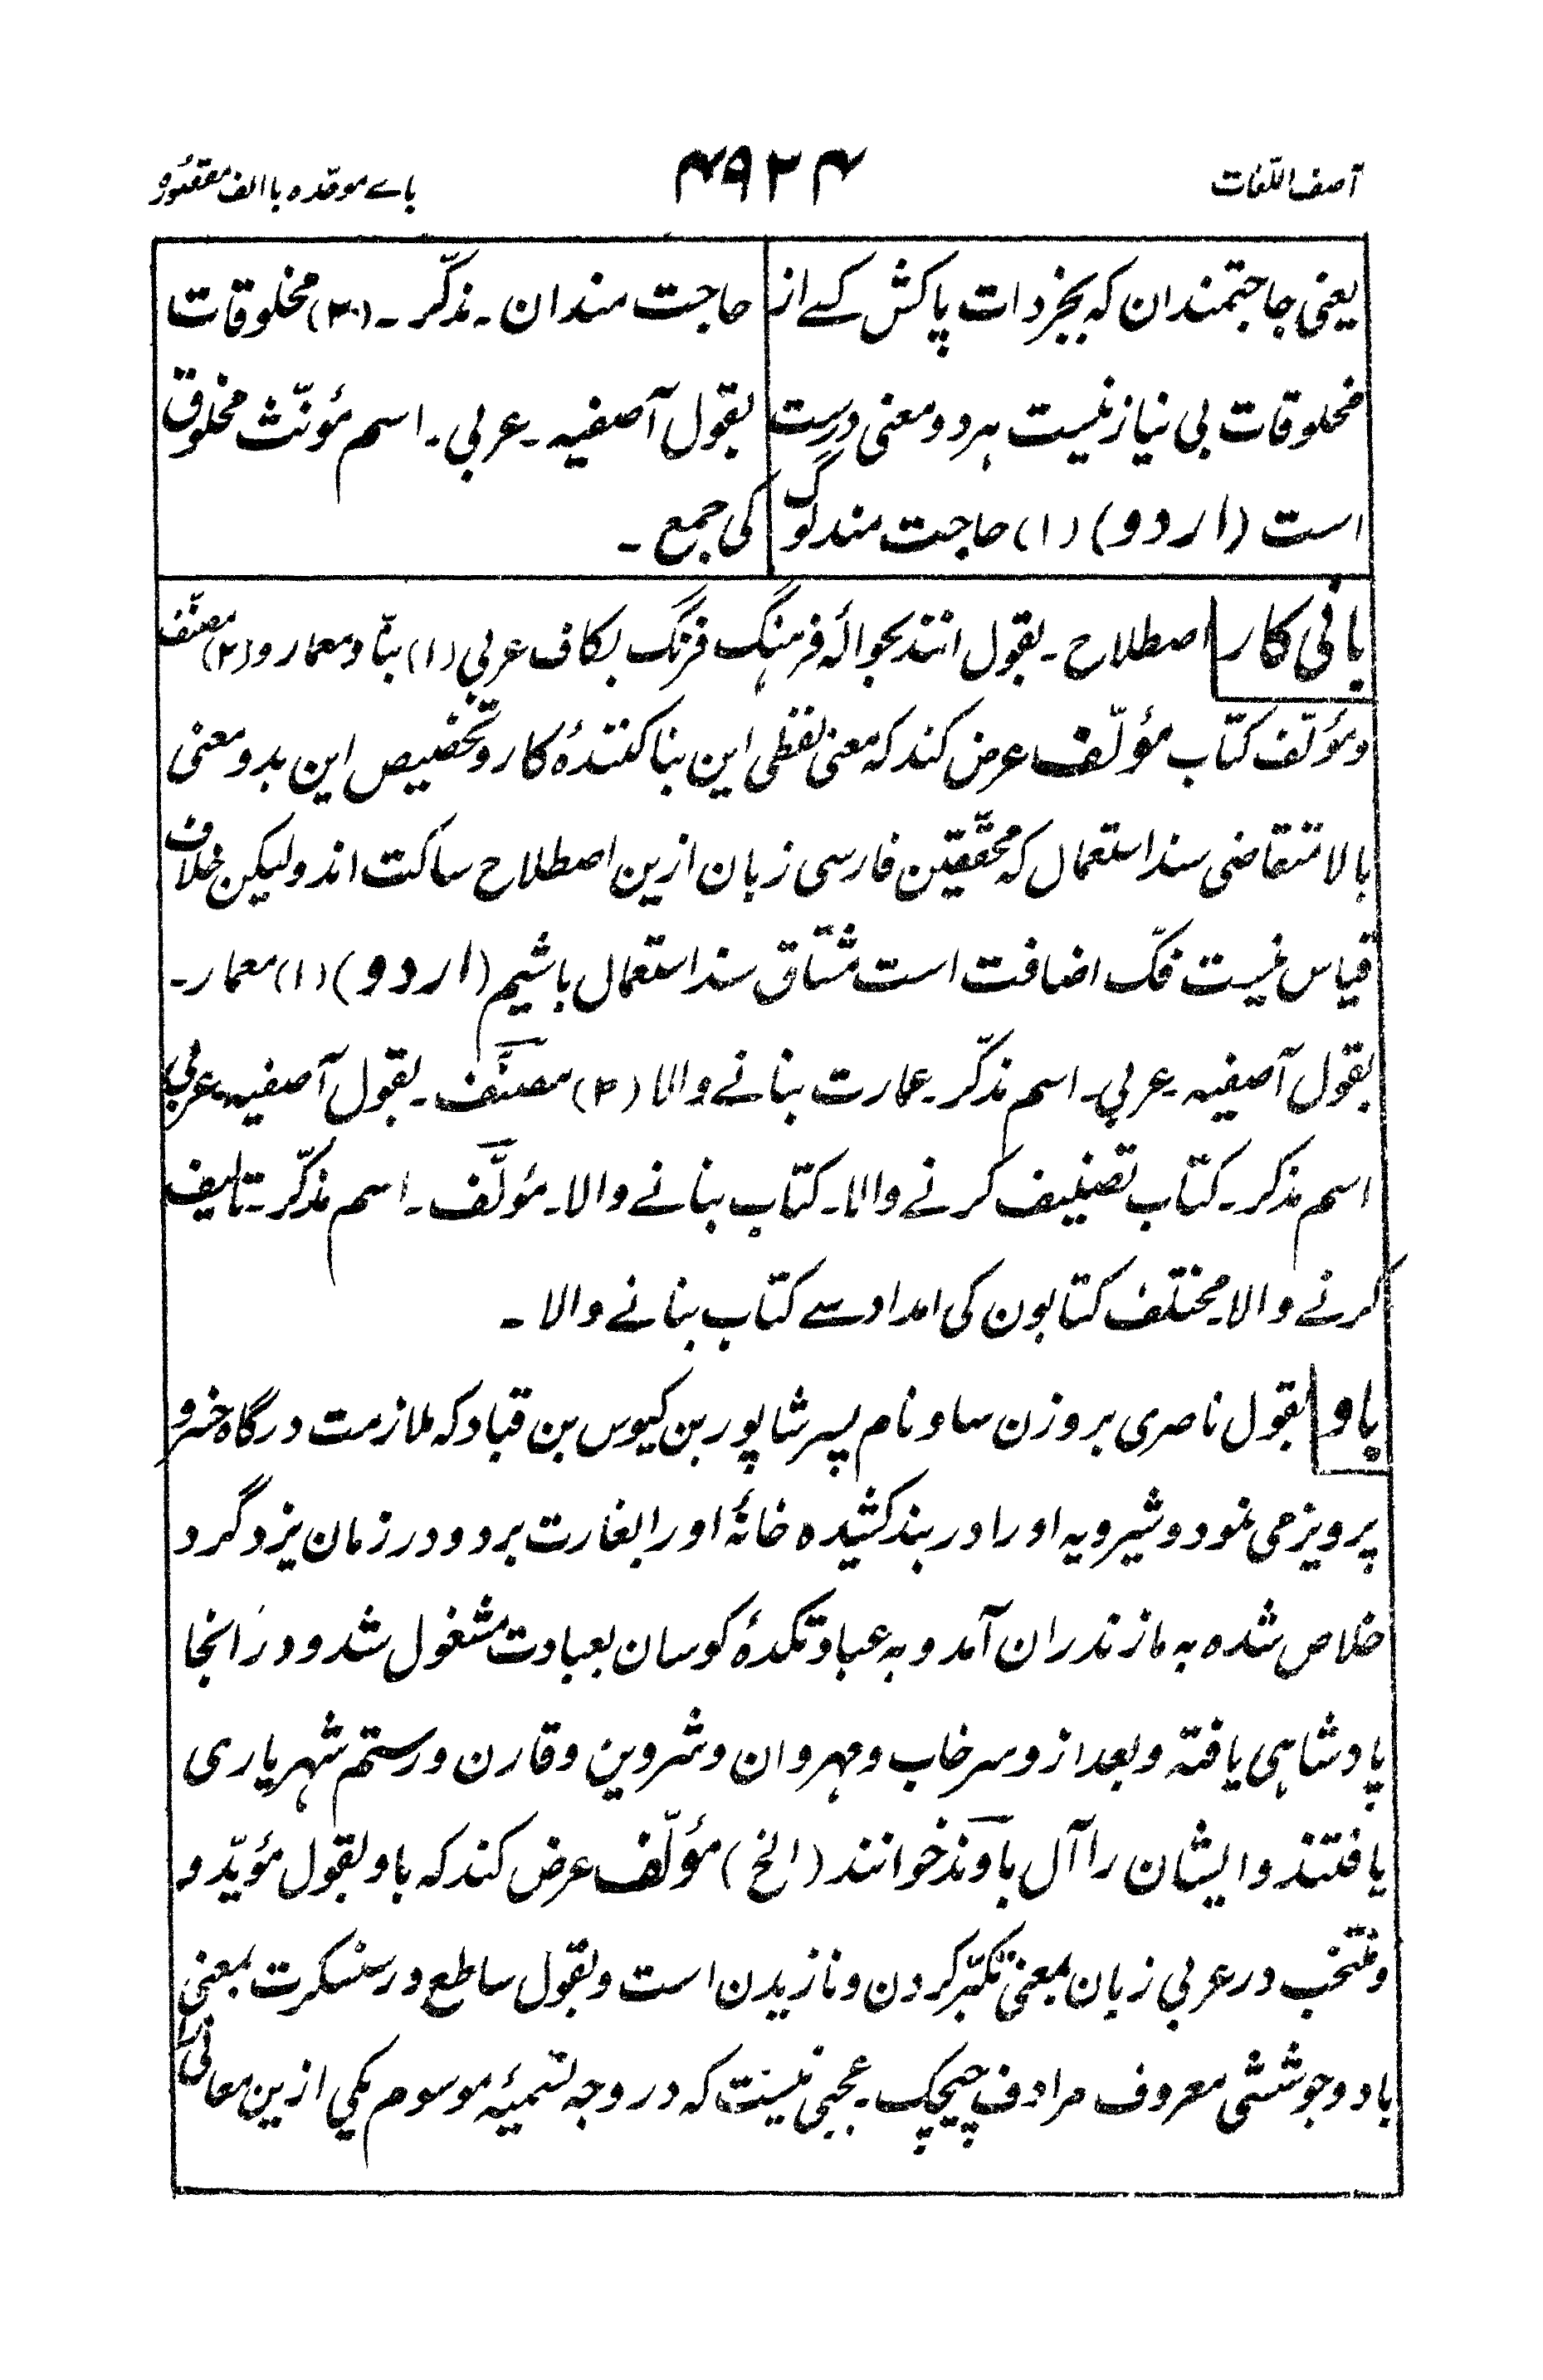 آصف اللغات
۴۹۲۴
باے موحّدہ باالف مقصورہ
یعنی حاجتمندان کہ بجز ذات پاکش کسے از
مخلوقات بی نیاز نیست ہر دو معنی درست
است (اردو) (۱) حاجت مند لوگ
حاجت مندان ۔ مذکّر ۔ (۲) مخلوقات
بقول آصفیہ ۔ عربی ۔ اسم مؤنّث مخلوق
کی جمع ۔
بانی کار اصطلاح ۔ بقول انند بحوالۂ فرہنگ فرنگ بکاف عربی (۱) بنّا و معمار و (۲) مصنّف
و مؤلّف کتاب مؤلّف عرض کند کہ معنی لفظی این بنا کنندۂ کار و تخصیص این بدو معنی
بالا متقاضی سند استعمال کہ محقّقین فارسی زبان ازین اصطلاح ساکت اند ولیکن خلاف
قیاس نیست فکّ اضافت است مشتاق سند استعمال باشیم (اردو) (۱) معمار ۔
بقول آصفیہ ۔ عربی ۔ اسم مذکّر ۔ عمارت بنانے والا (۲) مصنّف ۔ بقول آصفیہ ۔ عربی
اسم مذکر ۔ کتاب تصنیف کرنے والا ۔ کتاب بنانے والا ۔ مؤلّف ۔ اسم مذکّر ۔ تالیف
کرنے والا ۔ مختلف کتابون کی امداد سے کتاب بنانے والا ۔
باو بقول ناصری بر وزن ساو نام پسر شاپور بن کیوس بن قباد کہ ملازمت درگاہ خسرو
پرویز می نمود و شیرویہ او را در بند کشیدہ خانۂ او را بغارت برد و در زمان یزدگرد
خلاص شدہ بہ مازندران آمد و بہ عبادتکدۂ کوسان بعبادت مشغول شد و در انجا
پادشاہی یافتہ و بعد ازو سرخاب و مہروان و شروین و قارن و رستم شہریاری
یافتند و ایشان را آل باوند خوانند (الخ) مؤلّف عرض کند کہ باو بقول مؤیّد و
و منتخب در عربی زبان بمعنی تکبّر کردن و نازیدن است و بقول ساطع در سنسکرت بمعنی
باد و جوششی معروف مرادف چیچک ۔ عجبی نیست کہ در وجہ تسمیۂ موسوم یکی ازین معانی را